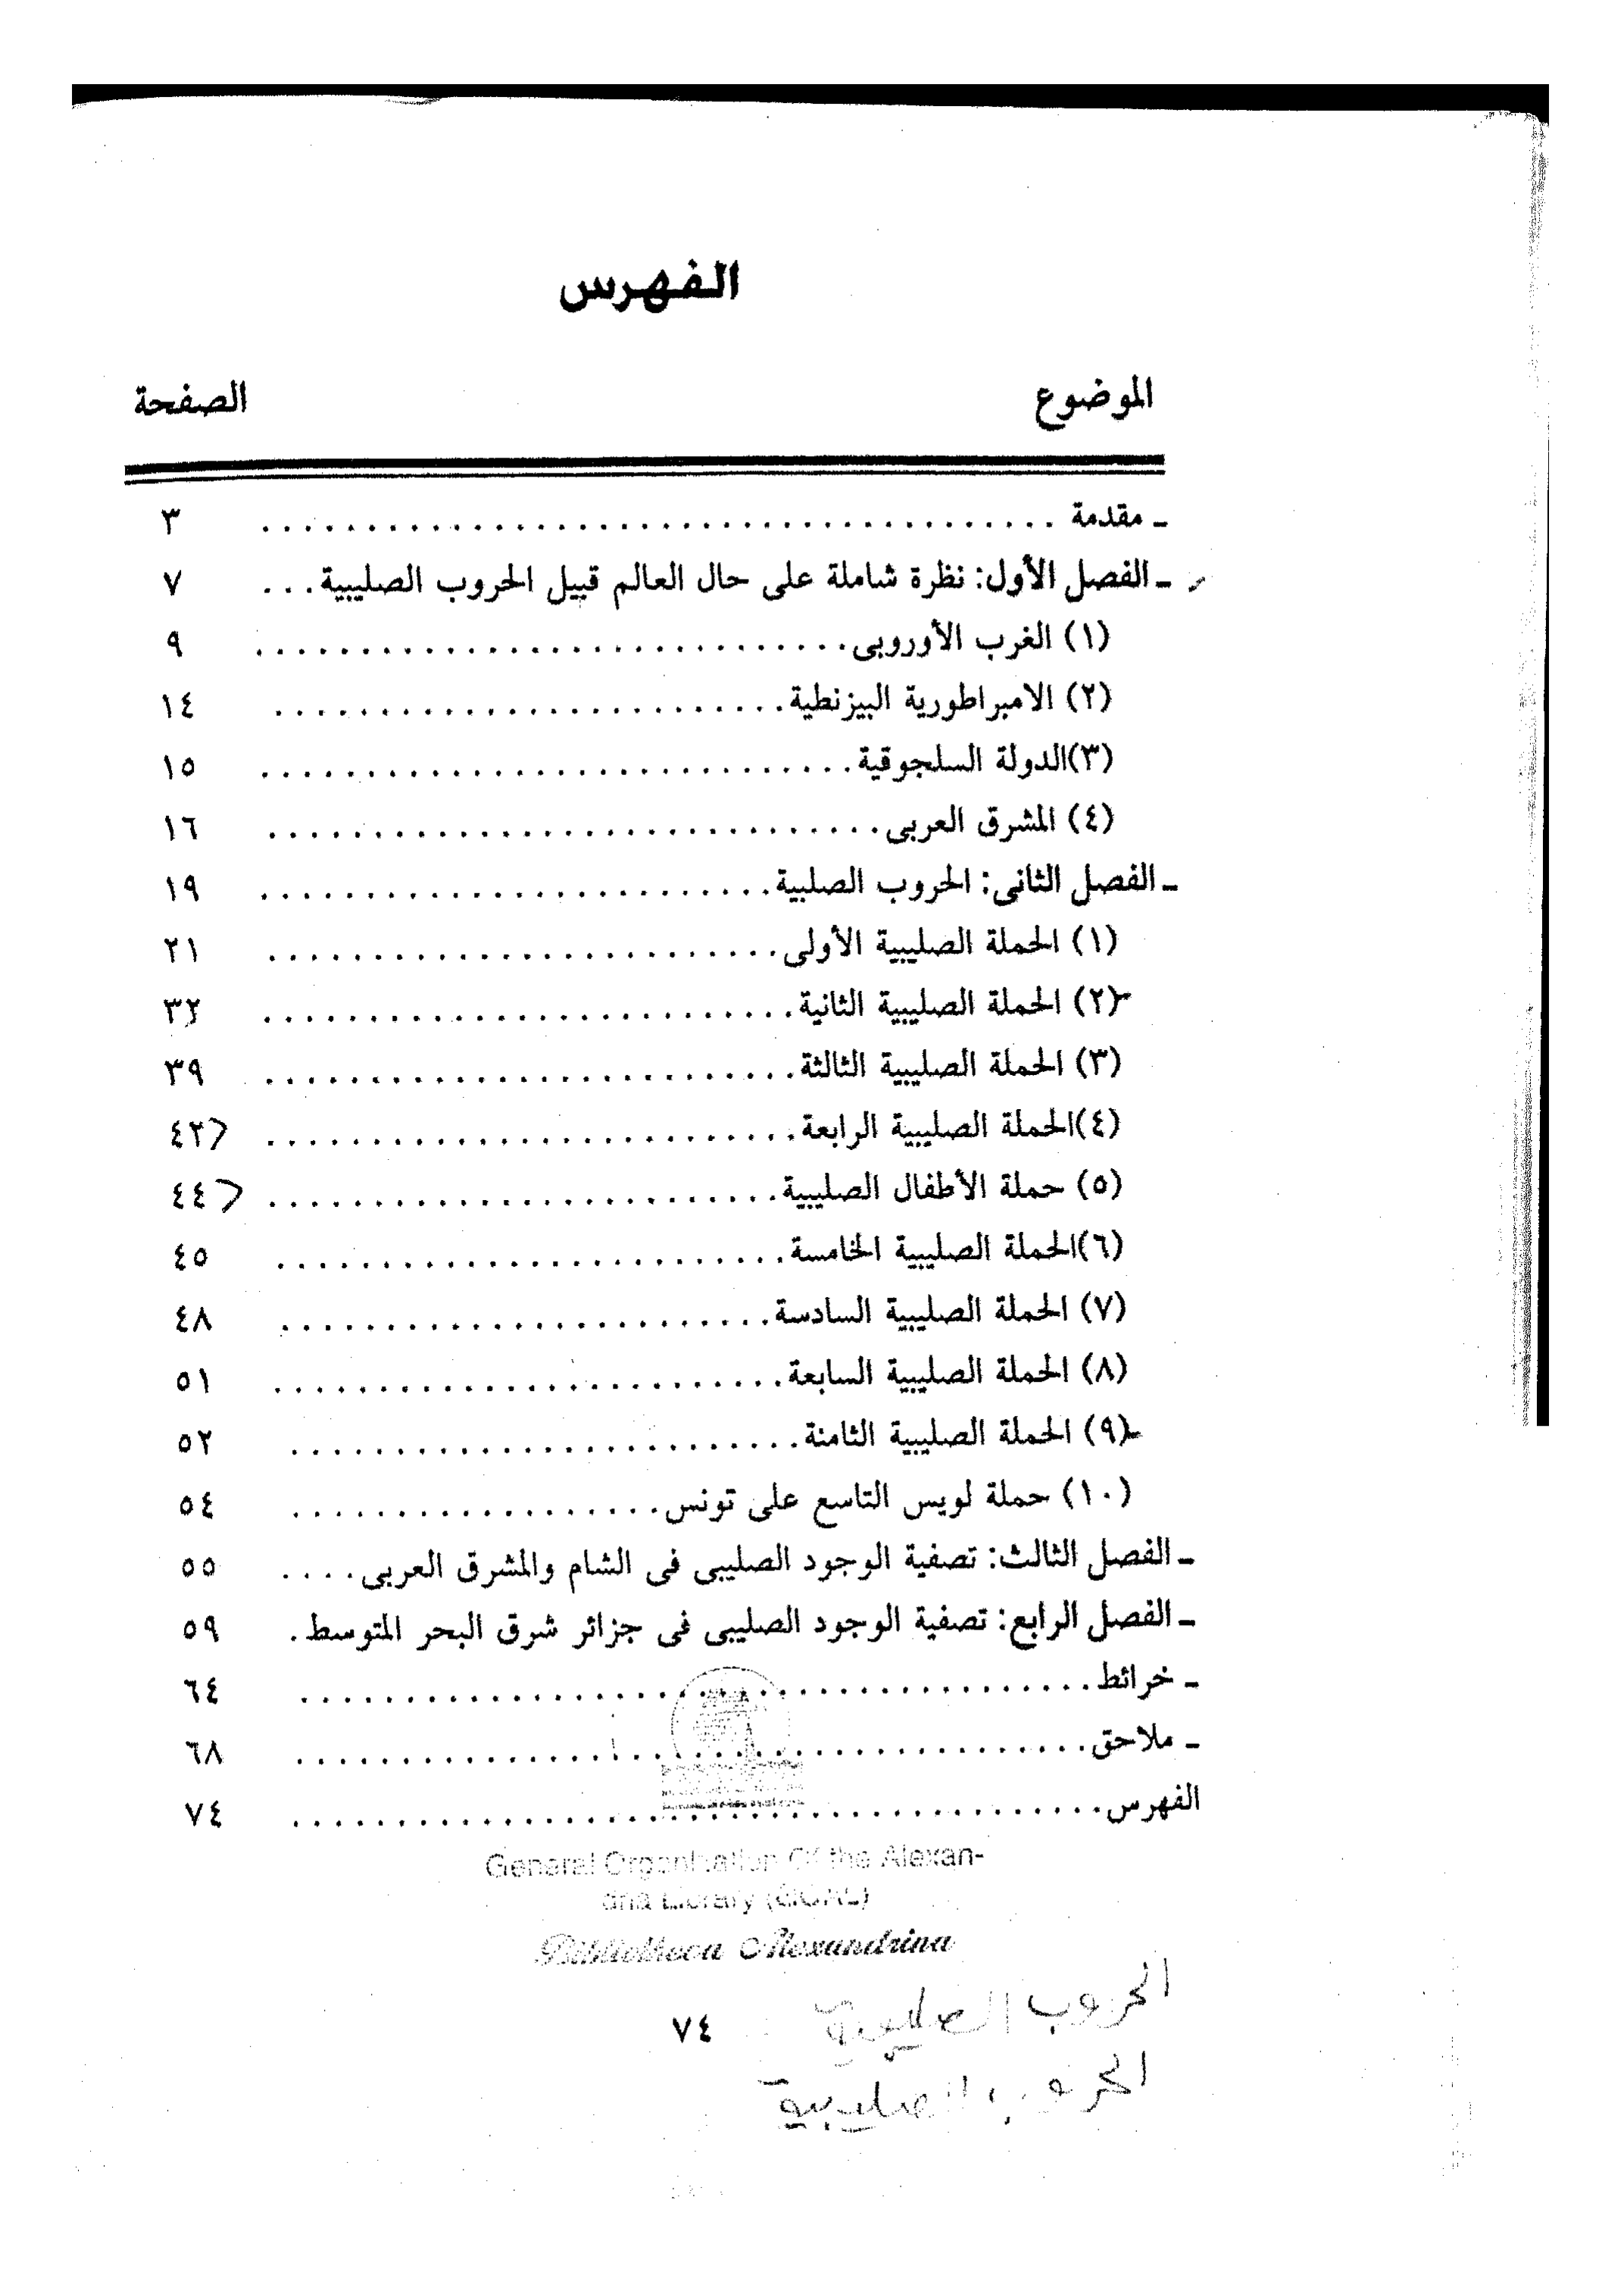 الفهرس
الموضوع الصفحة
ـ مقدمة ...................................... ٣
ـ الفصل الأول: نظرة شاملة على حال العالم قبيل الحروب الصليبية ... ٧
(١) الغرب الأوروبى ............................. ٩
(٢) الامبراطورية البيزنطية ......................... ١٤
(٣)الدولة السلجوقية ............................. ١٥
(٤) المشرق العربى .............................. ١٦
ـ الفصل الثانى: الحروب الصلبية ......................... ١٩
(١) الحملة الصليبية الأولى ......................... ٢١
(٢) الحملة الصليبية الثانية .......................... ٣٢
(٣) الحملة الصليبية الثالثة .......................... ٣٩
(٤)الحملة الصليبية الرابعة .......................... ٤٢
(٥) حملة الأطفال الصليبية ......................... ٤٤
(٦)الحملة الصليبية الخامسة ......................... ٤٥
(٧) الحملة الصليبية السادسة ........................ ٤٨
(٨) الحملة الصليبية السابعة ......................... ٥١
(٩) الحملة الصليبية الثامنة ......................... ٥٢
(١٠) حملة لويس التاسع على تونس .................. ٥٤
ـ الفصل الثالث: تصفية الوجود الصليبى فى الشام والمشرق العربى .... ٥٥
ـ الفصل الرابع: تصفية الوجود الصليبى فى جزائر شرق البحر المتوسط . ٥٩
ـ خرائط ...................................... ٦٤
ـ ملاحق ...................................... ٦٨
الفهرس ....................................... ٧٤
General Organization Of the Alexan-
dria Library (GOAL)
Bibliotheca Alexandrina
الحروب الصليبية
٧٤
الحروب الصليبية